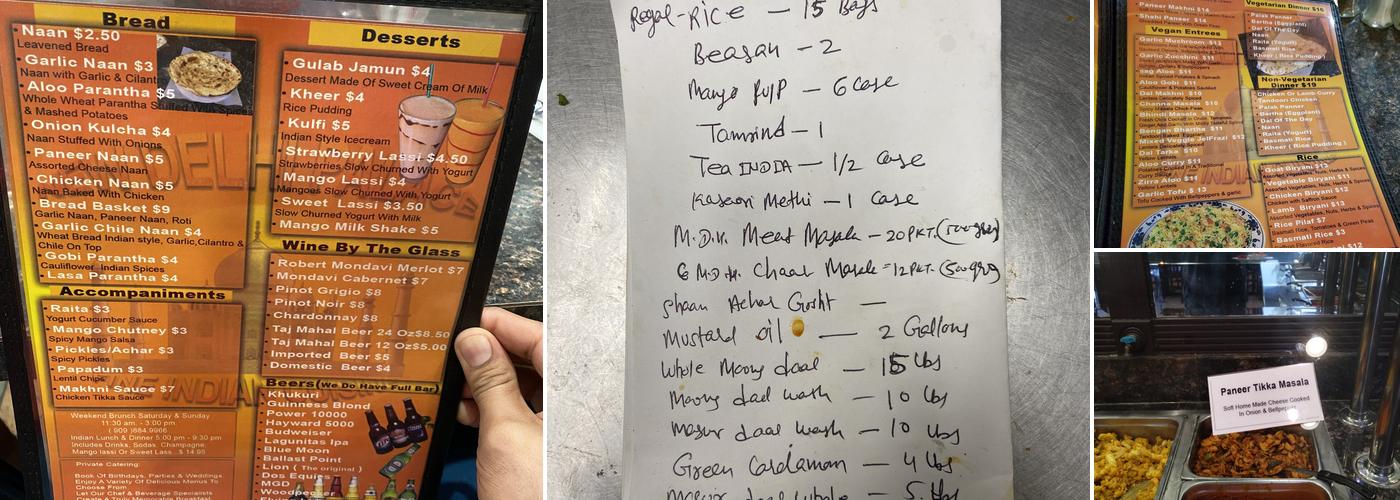 Bread
Naan $2.50
Leavened Bread
Garlic Naan $3
Naan with Garlic & Cilantro
Aloo Parantha $5
Whole Wheat Parantha Stuffed With Spices
& Mashed Potatoes
Onion Kulcha $4
Naan Stuffed With Onions
Paneer Naan $5
Assorted Cheese Naan
Chicken Naan $5
Naan Baked With Chicken
Bread Basket $9
Garlic Naan, Paneer Naan, Roti
Garlic Chile Naan $4
Wheat Bread Indian style, Garlic,Cilantro &
Chile On Top
Gobi Parantha $4
Cauliflower Indian Spices
Lasa Parantha $4
Accompaniments
Raita $3
Yogurt Cucumber Sauce
Mango Chutney $3
Spicy Mango Salsa
Pickles/Achar $3
Spicy Pickles
Papadum $3
Lentil Chips
Makhni Sauce $7
Chicken Tikka Sauce
Weekend Brunch Saturday & Sunday
11:30 am. - 3:00 pm.
(909)884.9966
Indian Lunch & Dinner 5:00 pm - 9:30 pm
Includes Drinks, Sodas, Champagne,
Mango lassi Or Sweet Lass..$ 14.95
Private Catering:
Book Of Birthdays, Parties & Weddings
Enjoy A Variety Of Delicious Menus To
Choose From.
Let Our Chef & Beverage Specialists
Desserts
Gulab Jamun $4
Dessert Made Of Sweet Cream Of Milk
Kheer $4
Rice Pudding
Kulfi $5
Indian Style Icecream
Strawberry Lassi $4.50
Strawberries Slow Churned With Yogurt
Mango Lassi $4
Mangoes Slow Churned With Yogurt
Sweet Lassi $3.50
Slow Churned Yogurt With Milk
Mango Milk Shake $5
Wine By The Glass
Robert Mondavi Merlot $7
Mondavi Cabernet $7
Pinot Grigio $8
Pinot Noir $8
Chardonnay $8
Taj Mahal Beer 24 Oz$8.50
Taj Mahal Beer 12 Oz$5.00
Imported Beer $5
Domestic Beer $4
Beers(We Do Have Full Bar)
Khukuri
Guinness Blond
Power 10000
Hayward 5000
Budweiser
Lagunitas Ipa
Blue Moon
Ballast Point
Lion (The original)
Dog Equies
MGD
Woodpecker
Regal-Rice — 15 Bags
Beasan — 2
Mango Pulp — 6 Case
Tamrind — 1
Tea INDIA — 1/2 Case
Kasoori Methi — 1 Case
M.D.H. Meat Masala — 20 PKT.
M.D.H. Chaat Masala = 12 PKT. (500grg)
Shaan Achar Gosht —
Mustard oil — 2 Gallons
Whole Moong daal — 15 lbs
Moong daal wash — 10 lbs
Masur daal wash — 10 lbs
Green Cardaman — 4 lbs
Paneer Makhni $14
Shahi Paneer $14
Vegan Entrees
Garlic Mushroom $13
Garlic Zucchini $11
sag Aloo $11
Aloo Gobi $11
Cauliflower & Potatoes Sauteed
Dal Makhni $10
Channa Masala $10
Bhindi Masala $12
Bengan Bhartha $11
Mixed Veggie JelFrazi $12
Dal Tarka $10
Aloo Curry $11
Zirra Aloo $11
Garlic Tofu $13
Tofu Cooked With Peppers & garlic
Vegetarian Dinner $16
Palak Panner
Bartha (Eggplant)
Dal Of The Day
Naan
Raita (Yogurt)
Basmati Rice
Kheer (Rice Pudding)
Non-Vegetarian
Dinner $19
Chicken Or Lamb Curry
Tandoori Chicken
Palak Paneer
Bartha (Eggplant)
Dal Of The Day
Naan
Raita (Yogurt)
Basmati Rice
Kheer (Rice Pudding)
Rice
Goat Biryani $13
Vegetable Biryani $11
Chicken Biryani $12
Lamb Biryani $13
Rice Pilaf $7
Basmati Rice $3
Paneer Tikka Masala
Soft Home Made Cheese Cooked
In Onion & Bellpepers